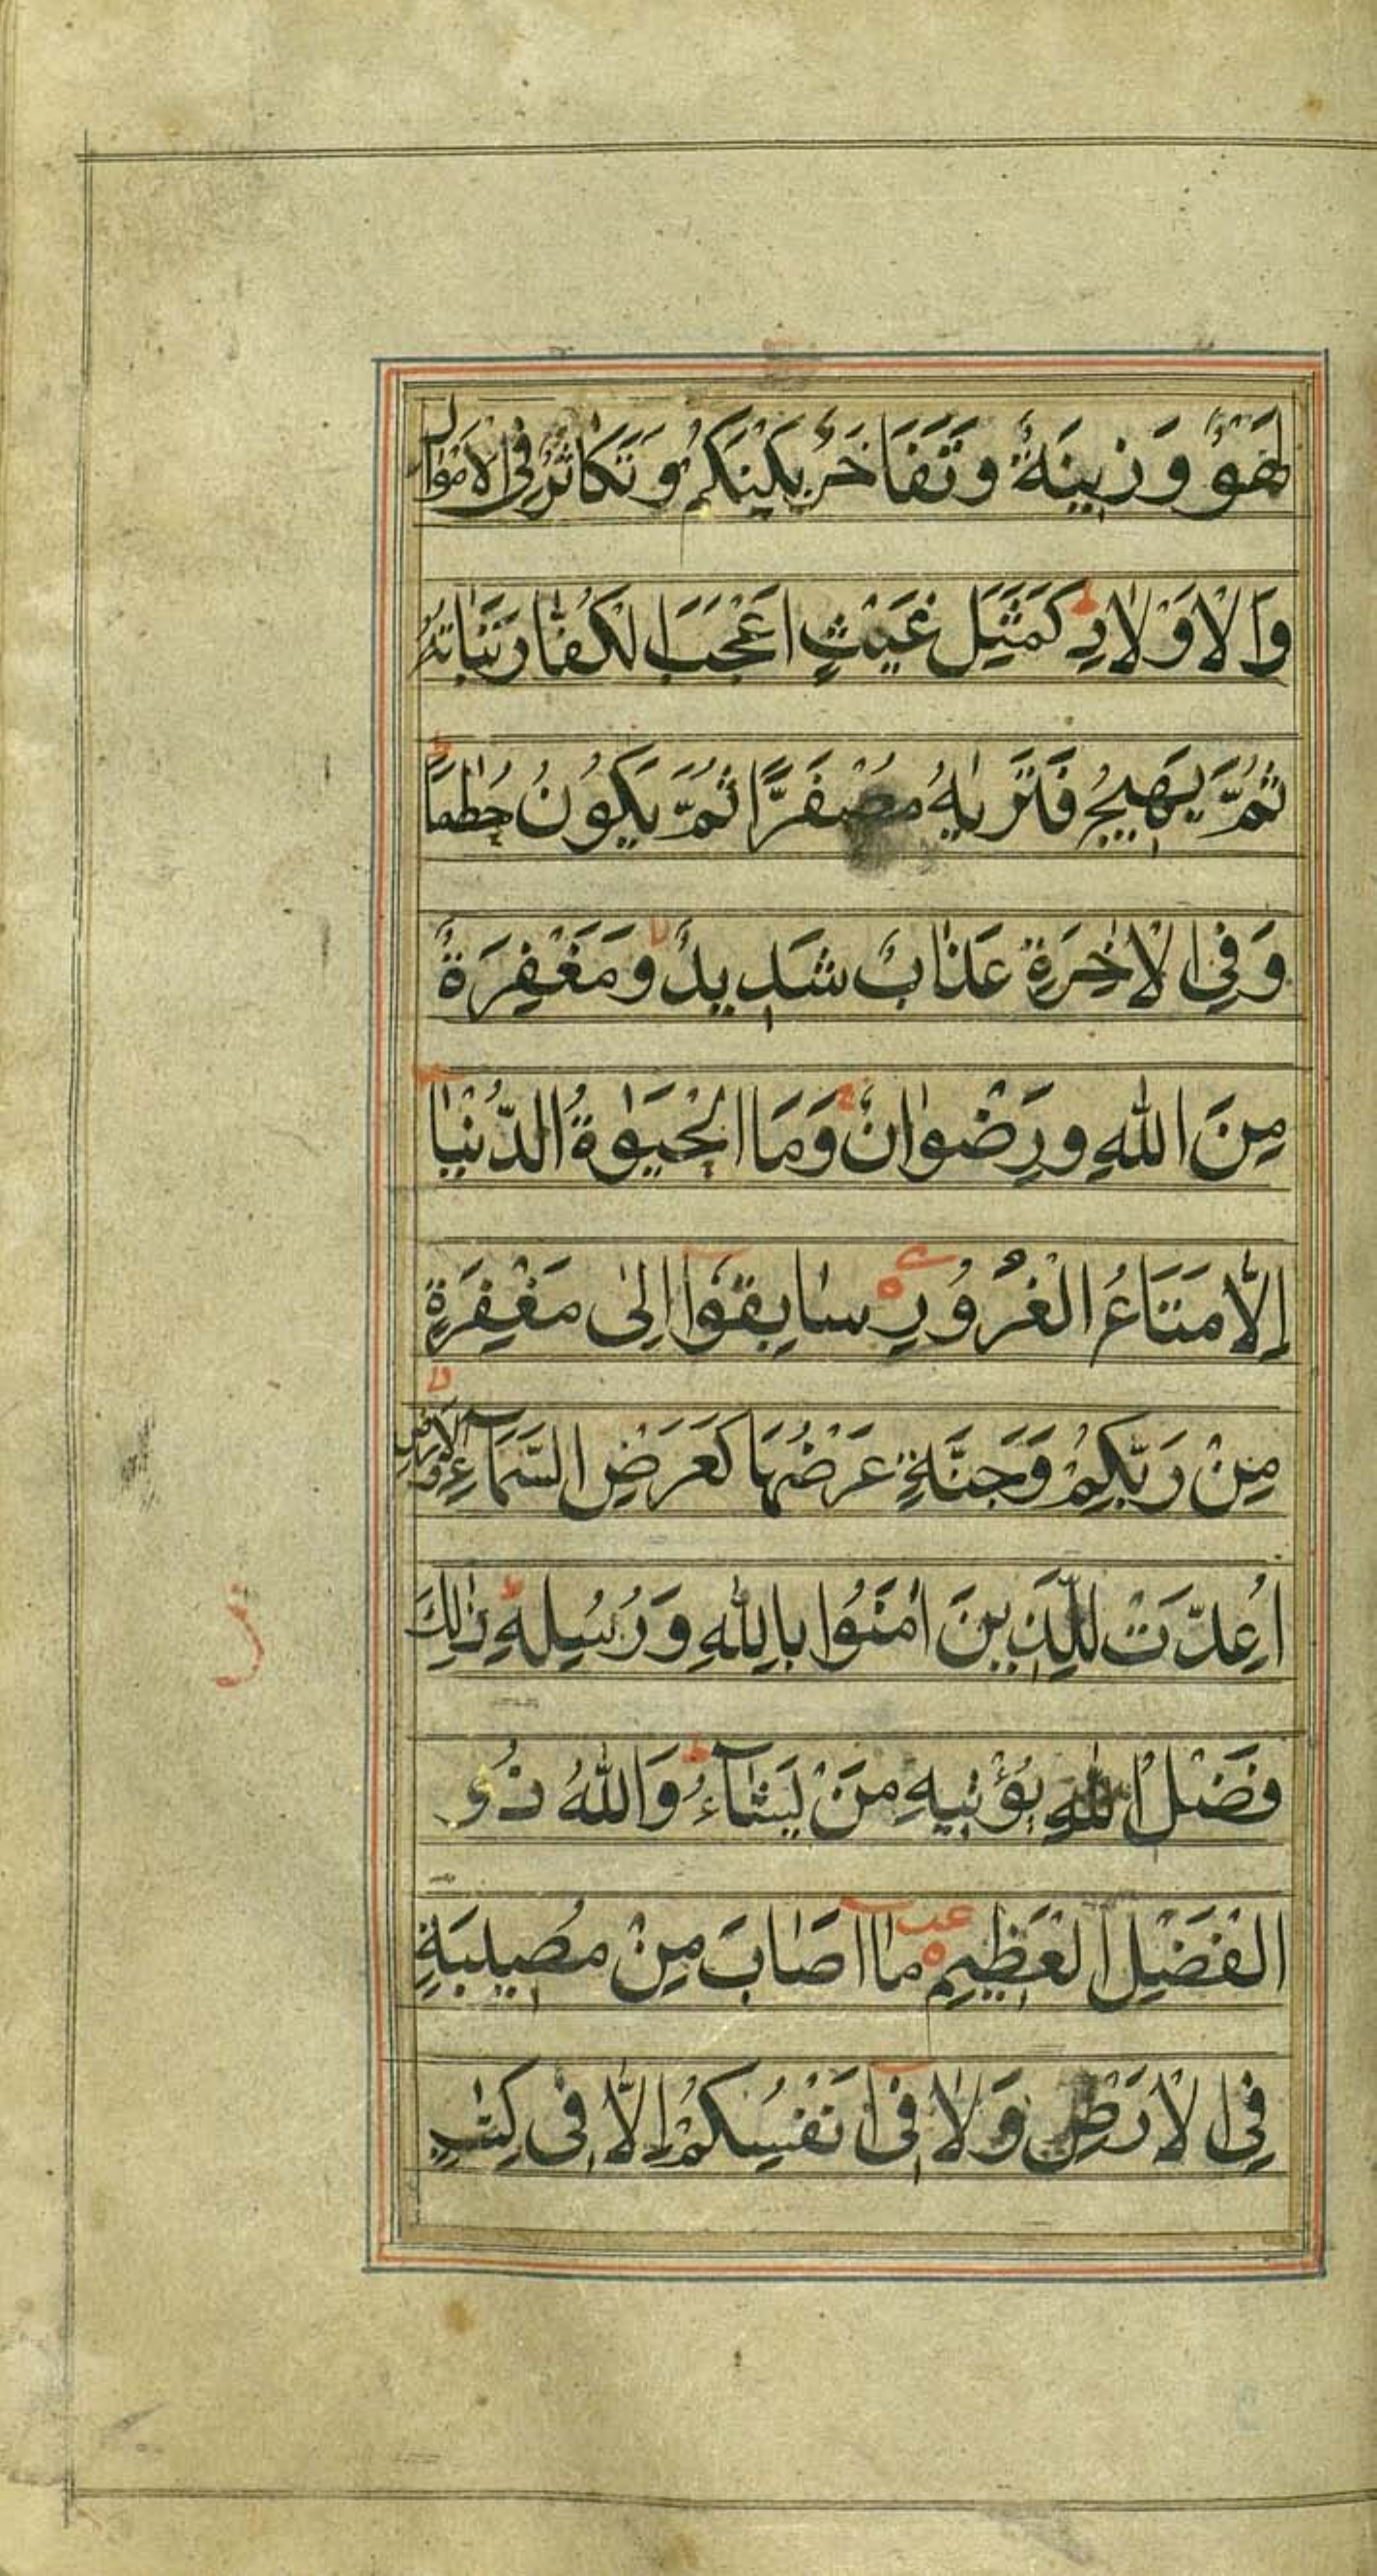 لَهْوٌ وَزِينَةٌ وَتَفَاخُرٌ بَيْنَكُمْ وَتَكَاثُرٌ فِي الْاَمْوَالِ
وَالْاَوْلَادِ ط كَمَثَلِ غَيْثٍ اَعْجَبَ الْكُفَّارَ نَبَاتُهُ
ثُمَّ يَهِيجُ فَتَرٰيهُ مُصْفَرًّا ثُمَّ يَكُونُ حُطٰمًا ط
وَفِي الْاٰخِرَةِ عَذَابٌ شَدِيدٌ لا وَمَغْفِرَةٌ
مِنَ اللّٰهِ وَرِضْوَانٌ ط وَمَا الْحَيٰوةُ الدُّنْيَا
اِلَّا مَتَاعُ الْغُرُورِ ه سَابِقُوا اِلٰى مَغْفِرَةٍ
مِنْ رَبِّكُمْ وَجَنَّةٍ عَرْضُهَا كَعَرْضِ السَّمَآءِ وَالْاَرْضِ لا
اُعِدَّتْ لِلَّذِينَ اٰمَنُوا بِاللّٰهِ وَرُسُلِهِ ط ذٰلِكَ
فَضْلُ اللّٰهِ يُؤْتِيهِ مَنْ يَشَآءُ ط وَاللّٰهُ ذُو
الْفَضْلِ الْعَظِيمِ ه عب مَا اَصَابَ مِنْ مُصِيبَةٍ
فِي الْاَرْضِ وَلَا فِي اَنْفُسِكُمْ اِلَّا فِي كِتٰبٍ